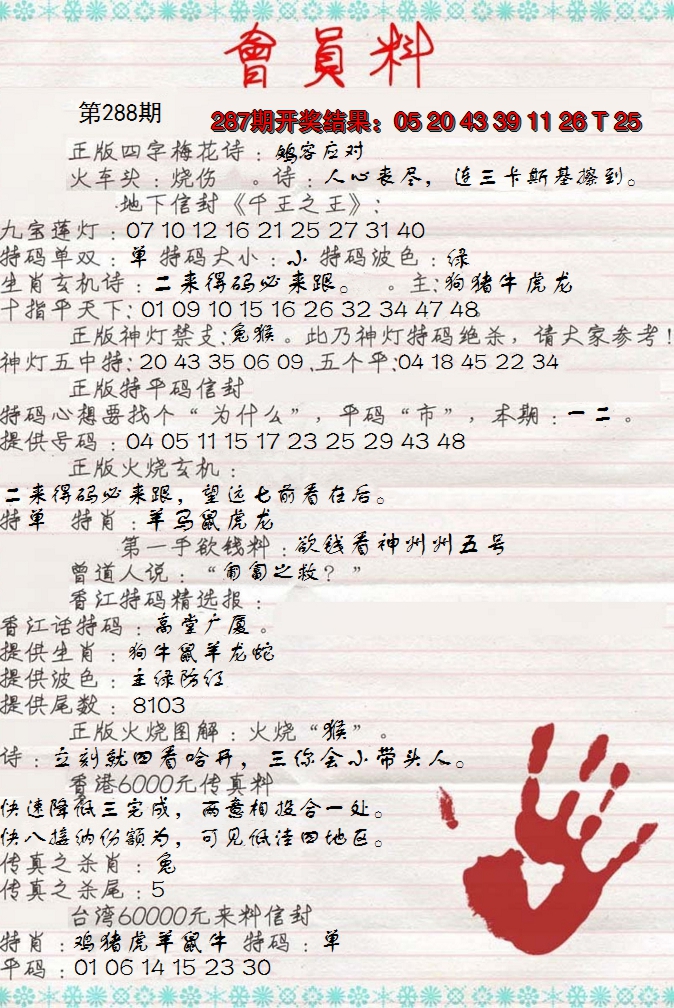 會員料
第288期
287期开奖结果：05 20 43 39 11 26 T 25
正版四字梅花诗：鸡容应对
火车头：烧伤 。诗：人心丧尽，连三卡斯基擦到。
地下信封《千王之王》：
九宝莲灯：07 10 12 16 21 25 27 31 40
特码单双：单 特码大小：小 特码波色：绿
生肖玄机诗：二来得码必来跟。 。主:狗猪牛虎龙
十指平天下：01 09 10 15 16 26 32 34 47 48
正版神灯禁支:兔猴。此乃神灯特码绝杀，请大家参考！
神灯五中特:20 43 35 06 09 .五个平:04 18 45 22 34
正版特平码信封
特码心想要找个“为什么”，平码“市”，本期：一二。
提供号码：04 05 11 15 17 23 25 29 43 48
正版火烧玄机：
二来得码必来跟，望远七前看在后。
特单 特肖：羊马鼠虎龙
第一手欲钱料：欲钱看神州州五号
曾道人说：“匍匐之救？”
香江特码精选报：
香江话特码：高堂广厦。
提供生肖：狗牛鼠羊龙蛇
提供波色：主绿防红
提供尾数：8103
正版火烧图解：火烧“猴”。
诗：立刻就四看哈开，三你会小带头人。
香港6000元传真料
快速降低三完成，两意相投合一处。
快八接纳份额为，可见低洼四地区。
传真之杀肖：兔
传真之杀尾：5
台湾60000元来料信封
特肖：鸡猪虎羊鼠牛 特码：单
平码：01 06 14 15 23 30